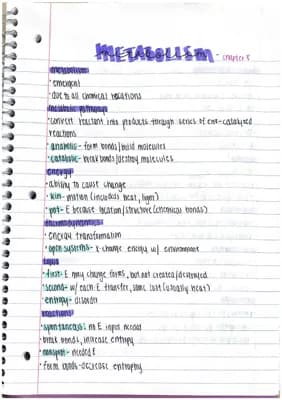 METABOLISM - chapter 8
metabolism
• emergent
• due to all chemical reactions
metabolic pathways
• convert reactant into products through series of enz-catalyzed
reactions
• anabolic - form bonds/build molecules
• catabolic - break bonds/destroy molecules
energy
• ability to cause change
• kin - motion (includes heat, light)
• pot - E because location/structure (chemical bonds)
thermodynamics
• energy transformation
• open systems - x-change energy w/ environment
laws
• first - E may change forms, but not created/destroyed
• second - w/ each E transfer, some lost (usually heat)
• entropy - disorder
reactions
• spontaneous: no E input needed
• break bonds, increase entropy
• nonspon - needed E
• form bonds - decrease entrophy